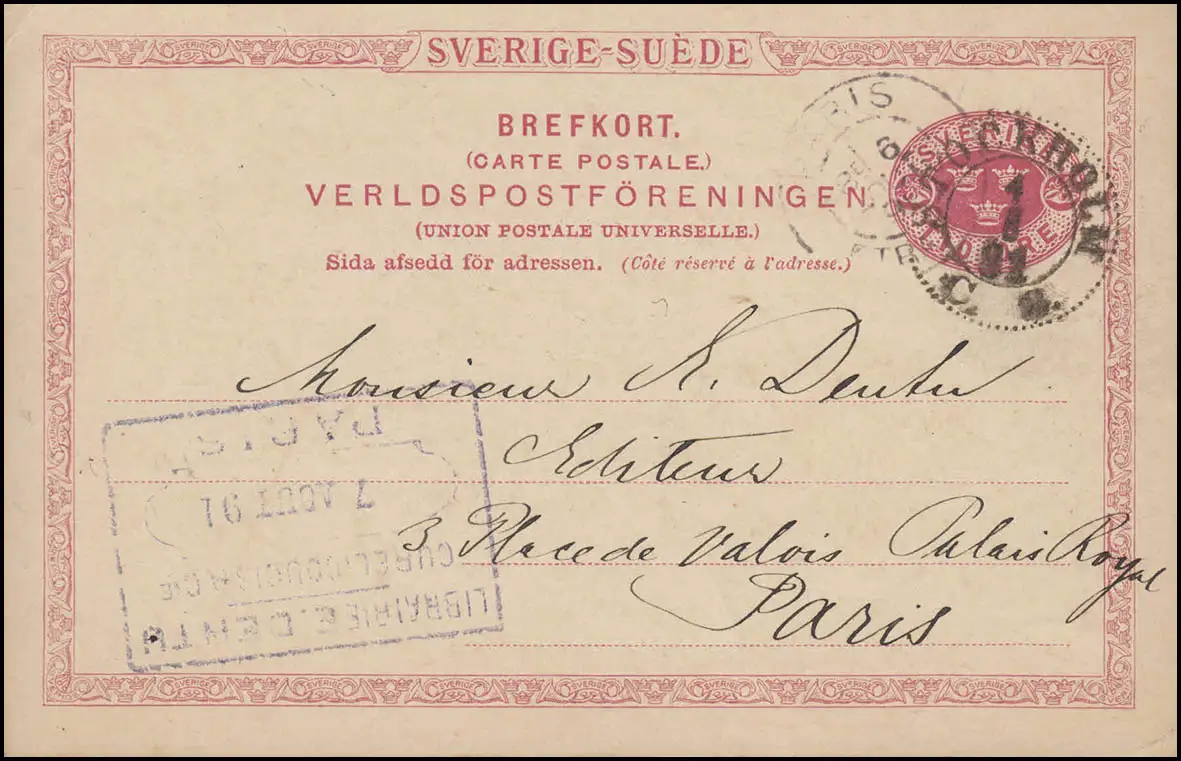 SVERIGE-SUÈDE
BREFKORT.
(CARTE POSTALE.)
VERLDSPOSTFÖRENINGEN
(UNION POSTALE UNIVERSELLE.)
Sida afsedd för adressen. (Côté réservé à l'adresse.)
SVERIGE
TIO ÖRE
STOCKHOLM
1
8
91
C.
PARIS
6
Monsieur E. Dentu
Editeur
3 Place de Valois Palais Royal
Paris
LIBRAIRIE E. DENTU
CUREL GOUGIS & CIE
7 AOUT 91
PARIS